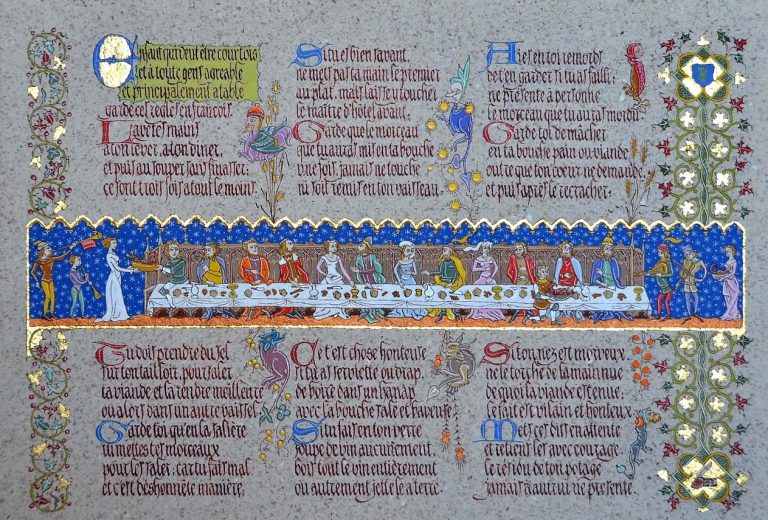 Enfant qui veut être courtois
et à toute gens agréable
et principalement à table
garde ces règles en françois
Laves tes mains
à ton lever, à ton dîner,
et puis au souper sans finasser:
ce sont trois fois à tout le moins.
Si tu es bien savant,
ne mets pas ta main le premier
au plat, mais laisse y toucher
le maître d'hôtel avant.
Garde que le morceau
que tu auras mis en ta bouche
une fois, jamais ne touche
ni soit remis en ton vaisseau.
Aies en toi remords
de t'en garder si tu as failli;
ne présente à personne
le morceau que tu auras mordu.
Garde toi de mâcher
en ta bouche pain ou viande
outre que ton cœur ne demande,
et puis après le recracher.
Tu dois prendre du sel
sur ton tailloir, pour saler
ta viande et la rendre meilleure
ou alors dans un autre vaissel.
Garde toi qu'en la salière
tu mettes tes morceaux
pour les saler: car tu fais mal
et c'est déshonnête manière.
Ce t'est chose honteuse
si tu as serviette ou drap,
de boire dans un hanap
avec la bouche sale et baveuse.
Si tu fais en ton verre
soupe de vin aucunement,
bois tout le vin entièrement
ou autrement jette le à terre.
Si ton nez est morveux,
ne le torche de la main nue
de quoi la viande est tenue:
le fait est vilain et honteux.
Mets ces dits en attente
et retiens les avec courage
le résidu de ton potage
jamais à autrui ne présente.